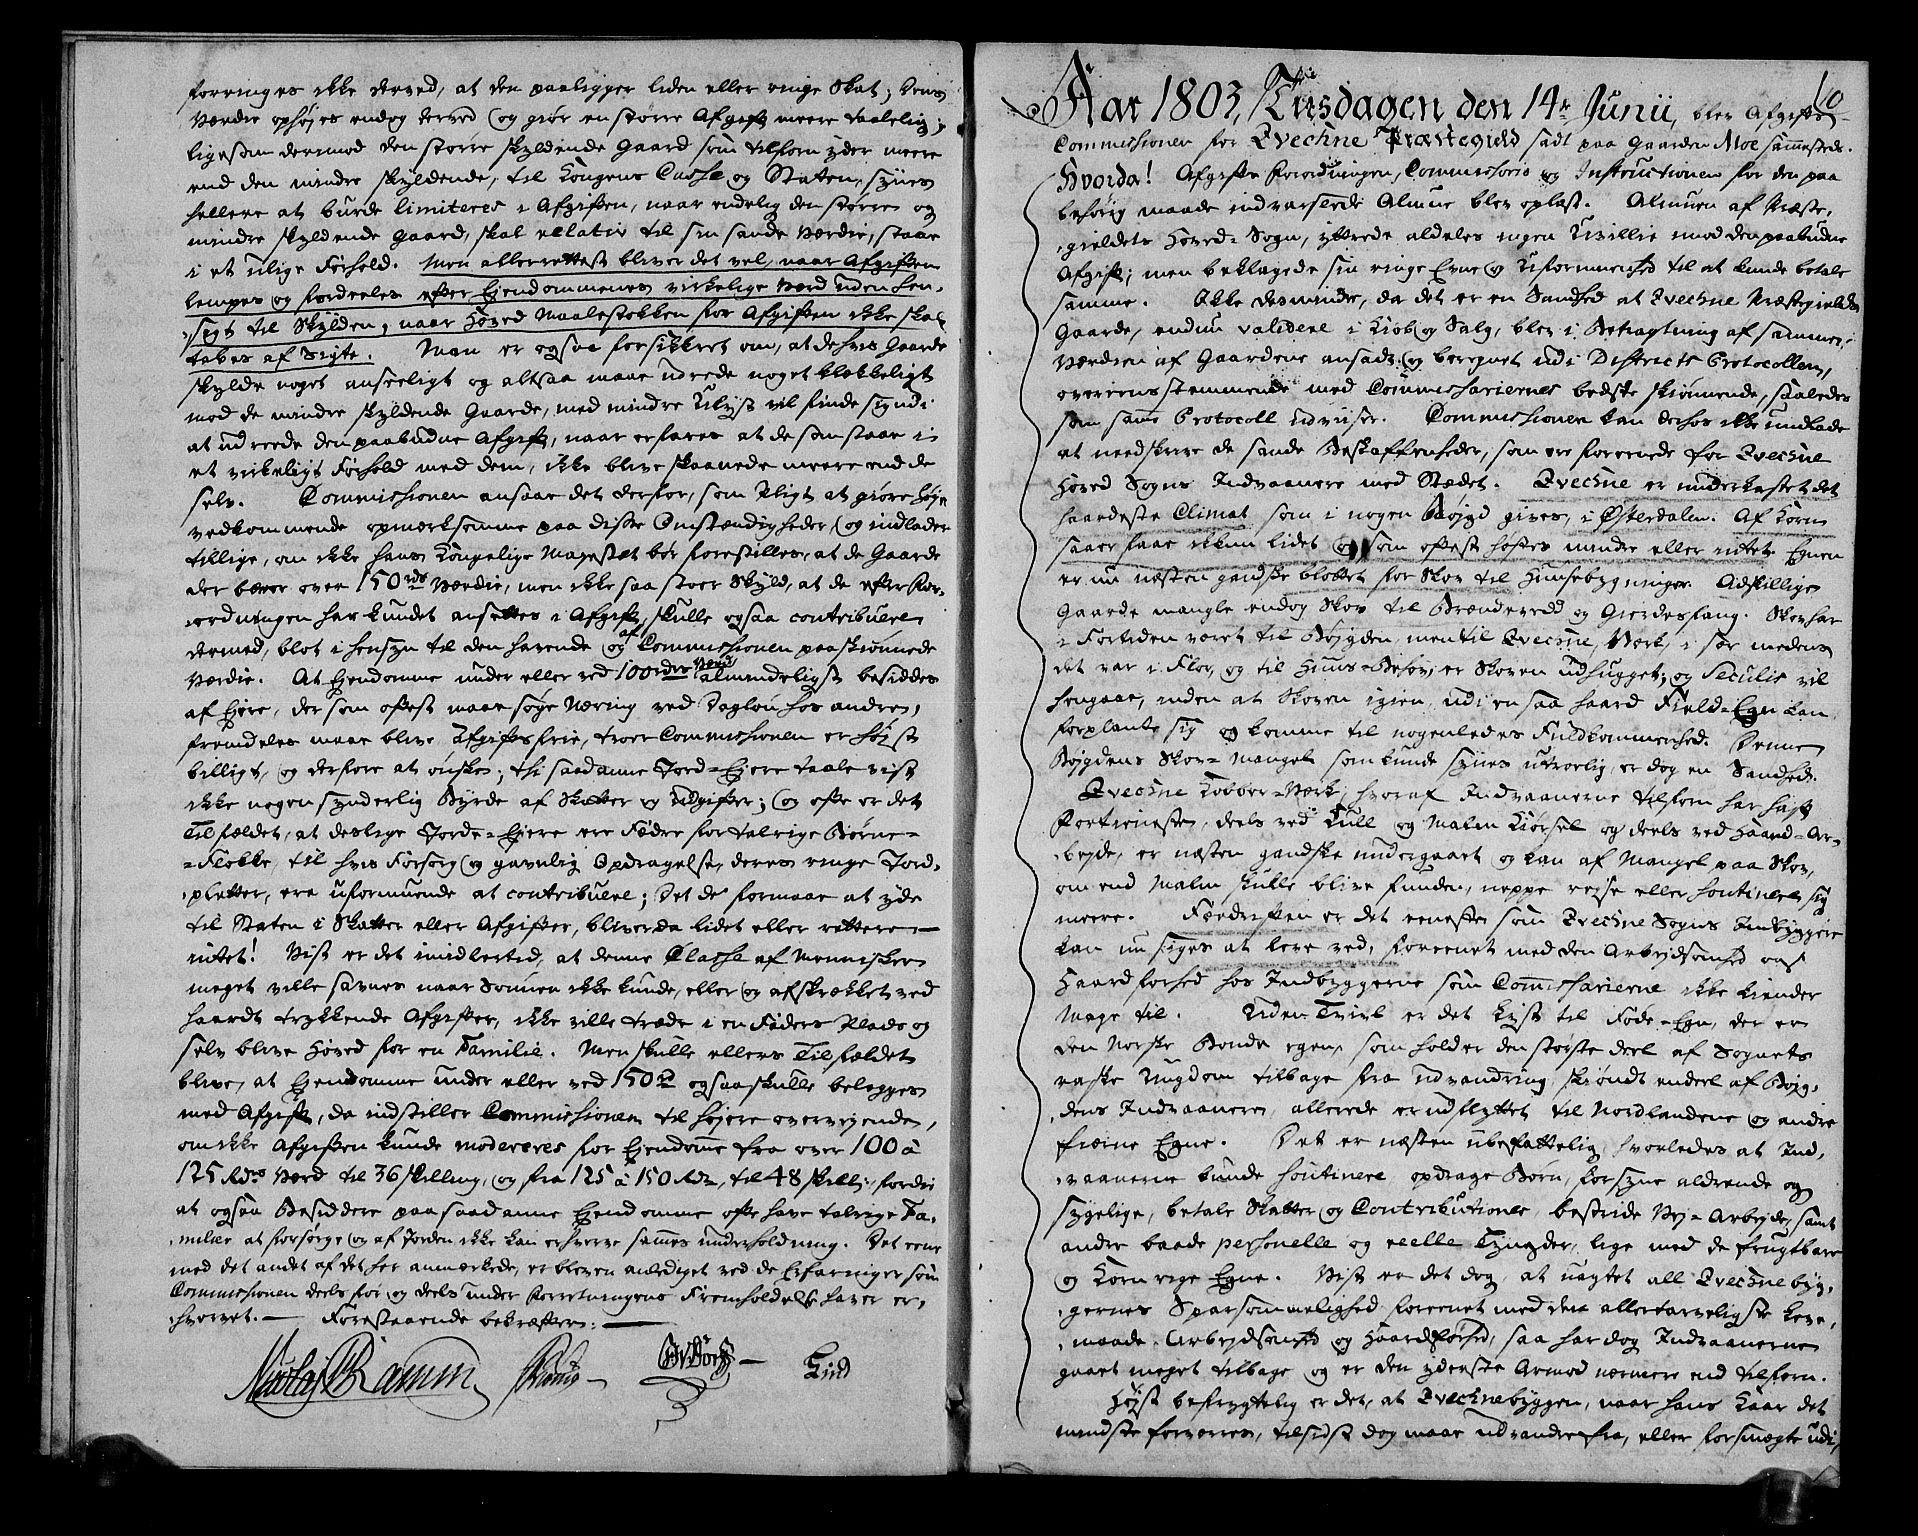 forringes ikke derved, at den paaligger liden eller ringe Skat; dens
Værdie ophøjes endog derved og giør en større Afgift meere taalelig;
ligesom derimod den større skyldende Gaard som tilforn yder meere
end den mindre skyldende, til Kongens Casse og Staten, synes
hellere at burde limiteres i Afgiften, naar endelig den større og
mindre skyldende Gaard, skal relativ til sin sande Værdie, staae
i et ulige Forhold. Men allerrettest bliver det vel, naar Afgiften
lempes og fordeeles efter Ejendommenes virkelige Værd uden Hen-
sigt til Skylden, naar Hoved Maalestokken for Afgiften ikke skal
tabes af Sigte. Man er ogsaa forsikkret om, at de hvis Gaarde
skylde noget anseeligt og altsaa maae udrede noget klækkeligt
mod de mindre skyldende Gaarde, med mindre Ulyst vil finde sig udi
at udreede den paabudne Afgift, naar erfares at de som staae i
et virkeligt Forhold med dem, ikke blive skaanede meere end de
selv. Commissionen ansaae det derfor, som Pligt at giøre Høje
vedkommende opmærksomme paa disse Omstændigheder, og indlader
tillige, om ikke hans Kongelige Majestæt bør forestilles, at de Gaarde
der bærer over 150rds Værdie, men ikke saa stoer Skyld, at de efter For-
ordningen har kundet ansættes i Afgift, skulle ogsaa contribuere
dermed, blot i hensyn til den havende og af Commissionen paaskiønnede
Værdie. At Ejendomme under eller ved 100rdrs Værd almindeligst besiddes
af Ejere, der som oftest maae søge Næring ved Dagløn hos andre,
fremdeles maae blive Afgiftsfrie, troer Commissionen er højst
billigt, og derfore at ønske; thi saadanne Jord-Ejere taale vist
ikke nogen synderlig Byrde af Skatter og Udgifter; og ofte er det
Tilfældet, at deslige Jorde-Ejere ere Fædre for talrige Børne-
-Flokke, til hvis Forsorg og gavnlig Opdragelse, deres ringe Jord-
pletter, ere uformuende at contribuere; det de formaae at yde
til Staten i Skatter eller Afgifter, bliver da lidet eller rettere
intet! Vist er det imidlertid, at denne Classe af Mennisker
meget ville savnes naar Sønnen ikke kunde, eller og afskrækket ved
haardt trykkende Afgifter, ikke ville træde i en Faders Plads og
selv blive Hoved for en Familie. Men skulle ellers Tilfældet
blive, at Ejendomme under eller ved 150rd ogsaa skulle belægges
med Afgift, da indstiller Commissionen til højere overvejende,
om ikke Afgiften kunde modereres for Ejendomme fra over 100 à
125 Rdrs Værd til 36 skilling, og fra 125 à 150 Rdr, til 48 skill:, fordi
at ogsaa Besiddere paa saadanne Ejendomme ofte have talrige Fa-
milier at forsørge og af Jorden ikke kan erhverve sammes underholdning. Det eene
med det andet af det her anmærkede, er bleven anlediget ved de Erfaringer som
Commissionen deels før og deels under Forretningens Fremholdelse haver er-
hvervet. — Forestaaende bekræfter: —
Nicolaj Ramm
Lind
Aar 1803, Tiisdagen den 14de Junii, blev Afgifts- 10
Commissionen for Qvechne Præstegield sadt paa Gaarden Moe sammesteds.
Hvorda! Afgifts Forordningen, Commissorio og Instructionen for den paa
behørig maade indvarslede Almue blev oplæst. Almuen af Præste-
gieldets Hoved-Sogn, yttrede aldeles ingen Uvillie imod den paabudne
Afgift; men beklagede sin ringe Evne og Uformuenhed til at kunde betale
samme. Ikke desmindre, da det er en Sandhed at Qvechne Præstegields
Gaarde, endnu validere i Kiøb og Salg, blev i Betragtning af sammes
Værdien af Gaardene ansadt og beregnet udi Districts Protocollen,
overeensstemmende med Commissariernes bedste skiønnende, saaledes
som samme Protocoll udviiser. Commissionen kan derhos ikke undlade
at nedskrive de sande Beskaffenheder, som ere forenede for Qvechne
Hoved Sogns Indvaanere med Stædet. Qvechne er underkastet det
haardeste Climat som i nogen Bøjgd gives, i Østerdalen. Af Korn
saaer faae ikkun lidet og som oftest høstes mindre eller intet. Egnen
er nu næsten gandske blottet for Skov til Huusebygninger. Adskillige
Gaarde mangle endog Skov til Brændeved og Gierdesfang. Skov har
i Fortiden været til Bøjgden, men til Qvechne Værk, i sær medens
det var i Flor, og til Huus-Behov, er Skoven udhugget; og Seculer vil
hengaae, inden at Skoven igien, udi en saa haard Field-Egn kan
forplante sig og komme til nogenledes Fuldkommenhed. Denne
Bøjgdens Skov-Mangel som kunde synes utroelig, er dog en Sandhed.
Qvechne Kobber-Værk, hvoraf Indvaanerne tilforn har havt
Fortieneste, deels ved Kull og Malm Kiørsel og deels ved Haand-Ar-
bejde, er næsten gandske undergaaet og kan af Mangel paa Skov,
om end Malm skulle blive funden, neppe rejse eller soutinere sig
meere. Fædriften er det eeneste som Qvechne Sogns Indbyggere
kan nu siges at leve ved, foreenet med den Arbejdsomhed og
Haardførhed hos Indbyggerne som Commissarierne ikke kiender
Mage til. Uden Tvivl er det Lyst til Føde-Egn, der er
den Norske Bonde egen, som holder den største deel af Sognets
raske Ungdom tilbage fra udvandring, skiøndt endeel af Bøjg-
dens Indvaanere, allerede er udflyttet til Nordlandene og andre
fierne Egne. Det er næsten ubefattelig hvorledes at Ind-
vaanerne kunde soutinere, opdrage Børn, forsyne aldrende og
sygelige, betale Skatter og Contributioner, bestride Vej-Arbejde, samt
andre baade personelle og reelle Tyngder, lige med de frugtbare
og Korn rige Egne. Vist er det dog, at uagtet all Qvechneby-
gernes Sparsommelighed foreenet med den allertarveligste Leve-
maade, Arbejdsomhed og Haardførhed, saa har dog Indvaanerne
gaaet meget tilbage og er den yderste Armod nærmere end tilforn.
Højst befrygtelig er det, at Qvechnebyggen, naar hans Kaar det
mindste forværres, tilsidst dog maae udvandre fra, eller forsmægte udi,